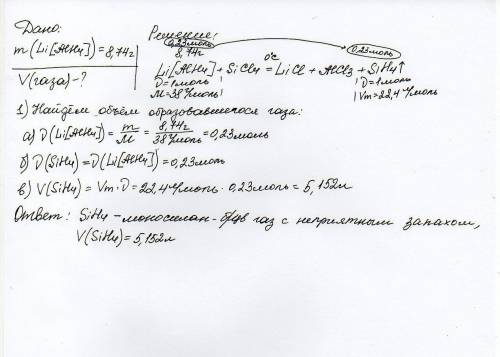 Дано:
m(Li[AlH4])=8,74г
V(газа)-?
Решение:
0,23моль 0,23моль
8,74г
0°C
Li[AlH4] + SiCl4 = LiCl + AlCl3 + SiH4↑
ν=1моль ν=1моль
M=38г/моль Vm=22,4л/моль
1) Найдём объём образовавшегося газа:
а) ν(Li[AlH4]) = m/M = 8,74г/38г/моль = 0,23моль
б) ν(SiH4) = ν(Li[AlH4]) = 0,23моль
в) V(SiH4) = Vm·ν = 22,4л/моль · 0,23моль = 5,152л
Ответ: SiH4 – моносилан – б/цв газ с неприятным запахом,
V(SiH4) = 5,152л